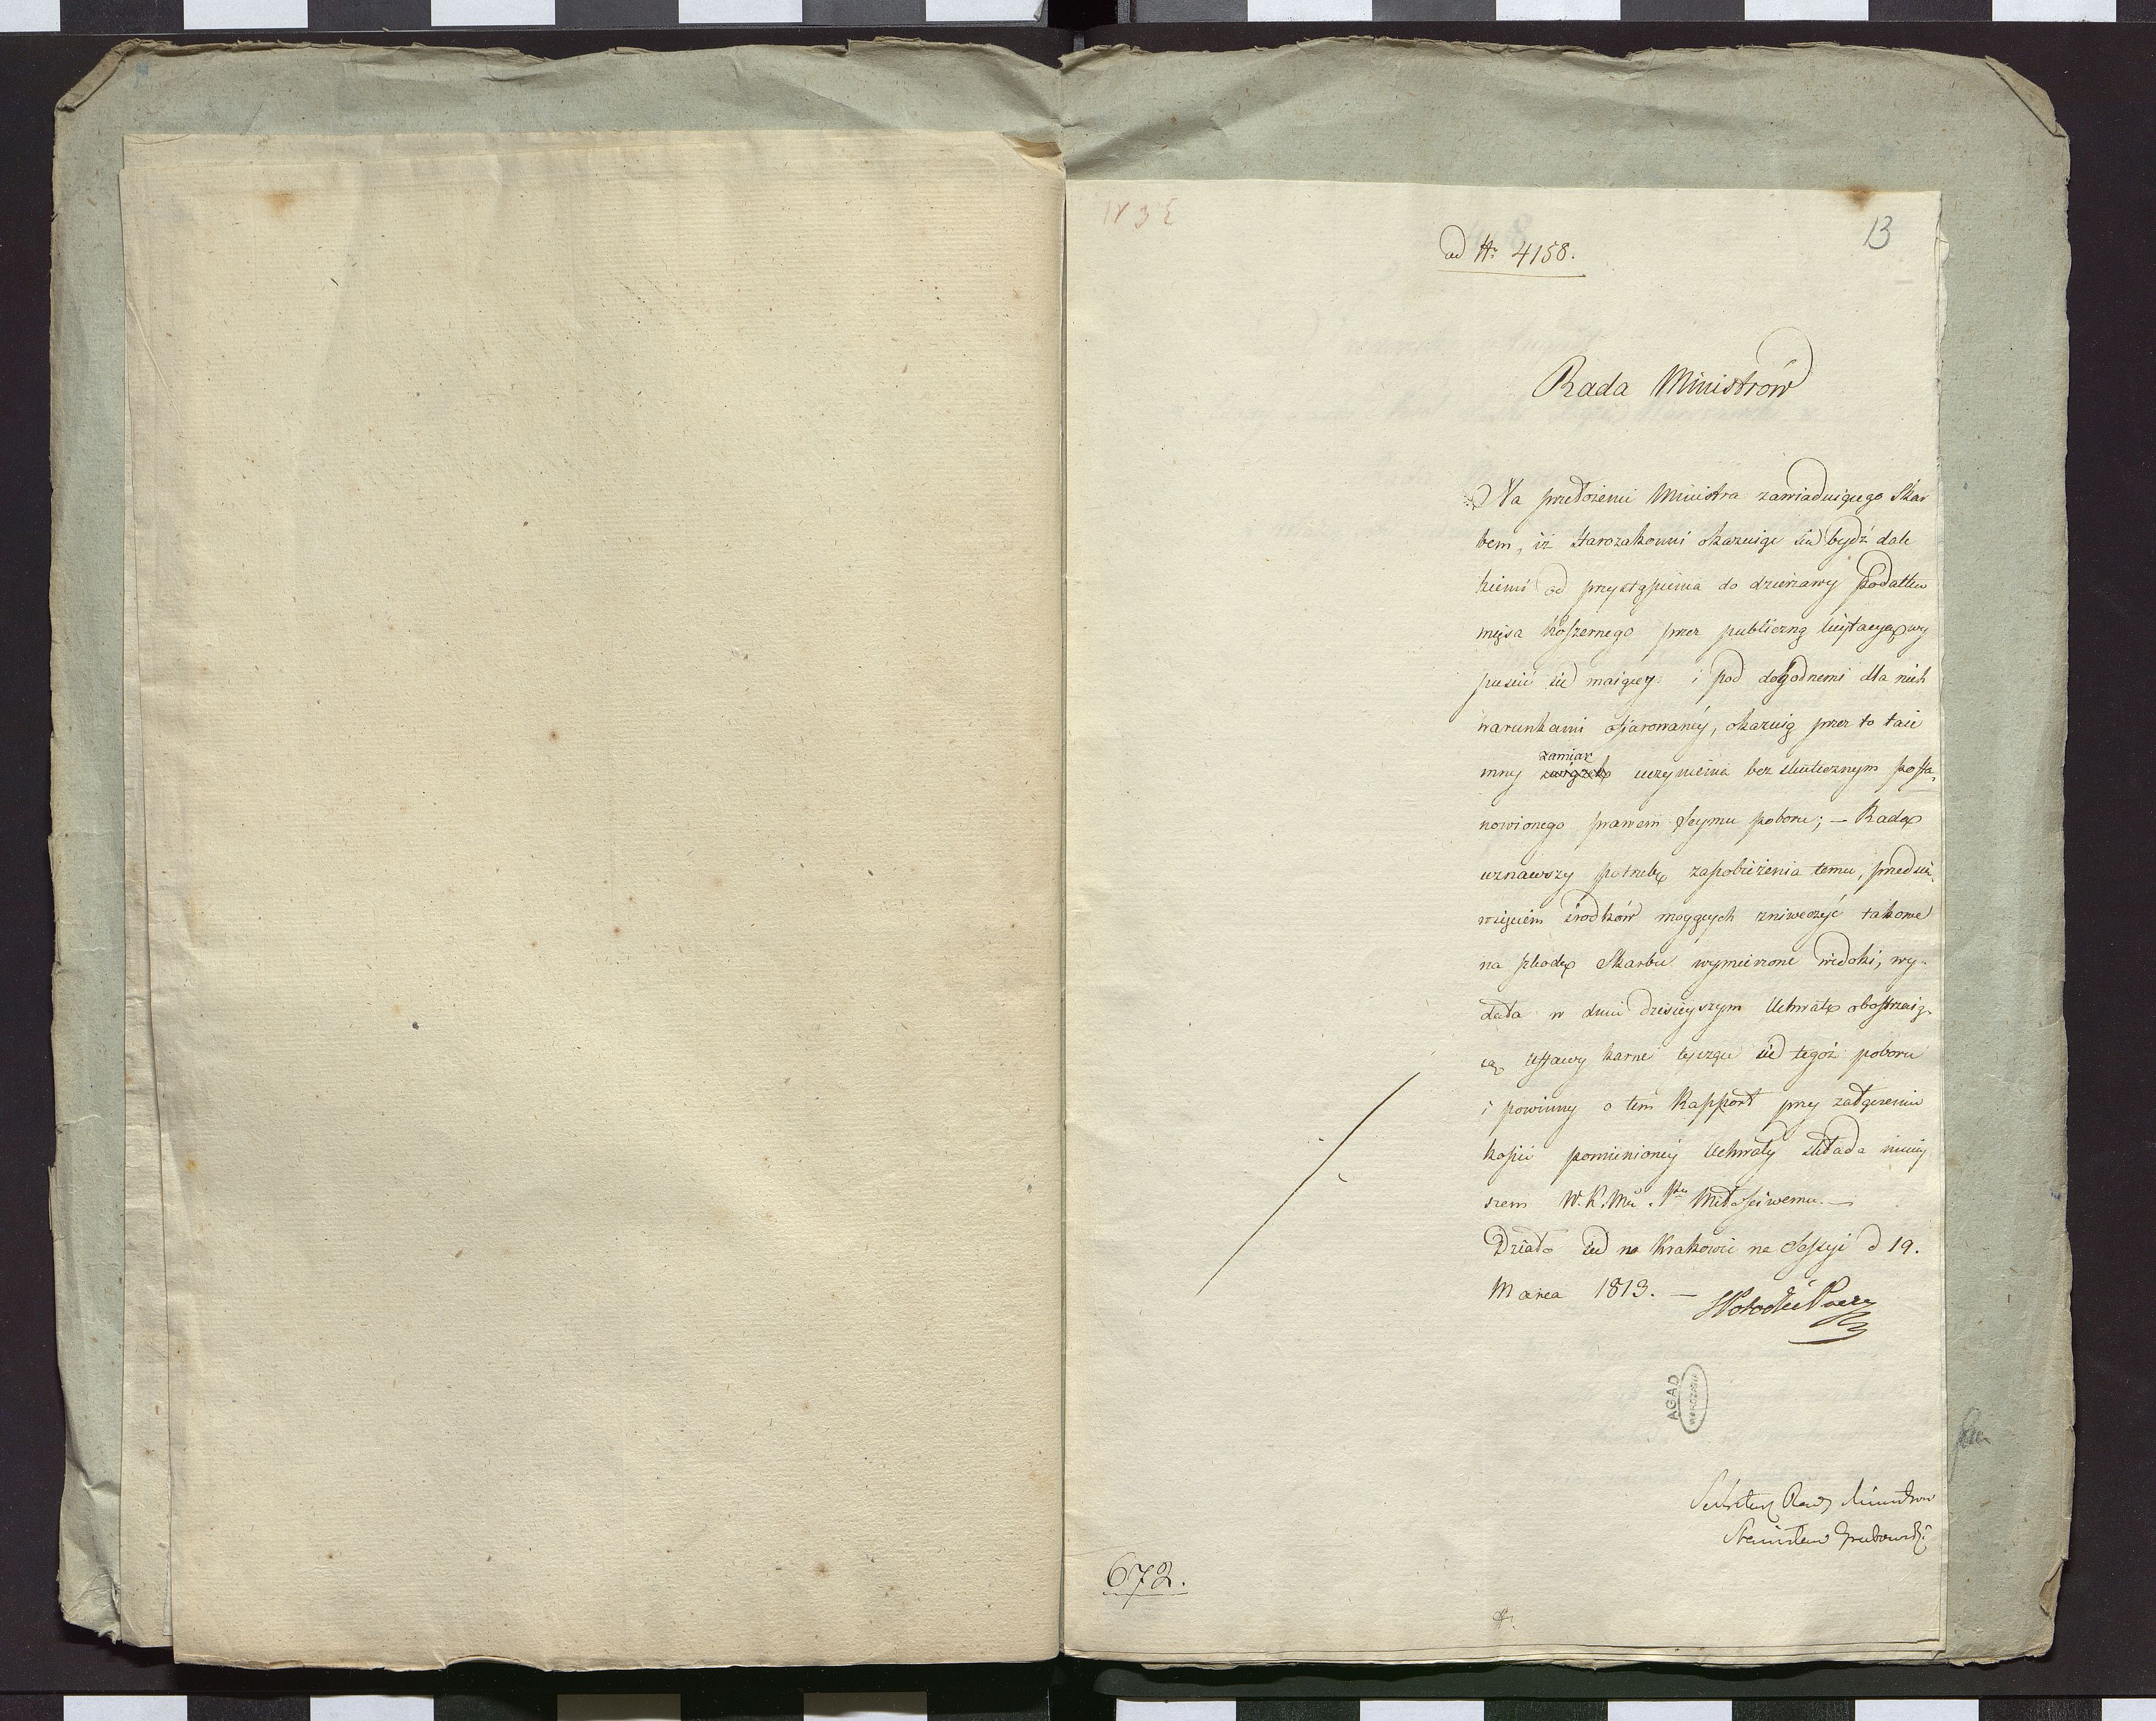 13
ad Nr 4158.
Rada Ministrów
Na przełożenie Ministra zawiaduiącego Skar
bem, iż starozakonni okazuiąc się bydź dale
kiemi od przystąpienia do dzierżawy Podatku
mięsa koszernego przez publiczną licytacyę wy
puscić się maiącey i pod dogodnemi dla nich
warunkami ofiarowaney, okazuią przez to taie
mny zamiar uczynienia bez skutecznym posta,
nowionego prawem Seymu poboru; – Rada
uznawszy potrzebę zapobieżenia temu, przedsię,
wzięciem środków mogących zniweczyć takowe
na szkodę Skarbu wymierzone widoki, wy-
dała w dniu dzisieyszym Uchwałę obostrzaią-
cą ustawy karne tyczące się tegoż poboru
i powinny o tem Rapport przy załączeniu
kopii pomienioney Uchwały składa niniey
szem W. K. Mci. Pnu Miłościwemu. —
Działo się na Krakowie na Sessyi d 19.
Marca 1813. —
AGAD
WARSZAWA
Sekretarz Rady Ministrow
Stanisław Grabowski
672.